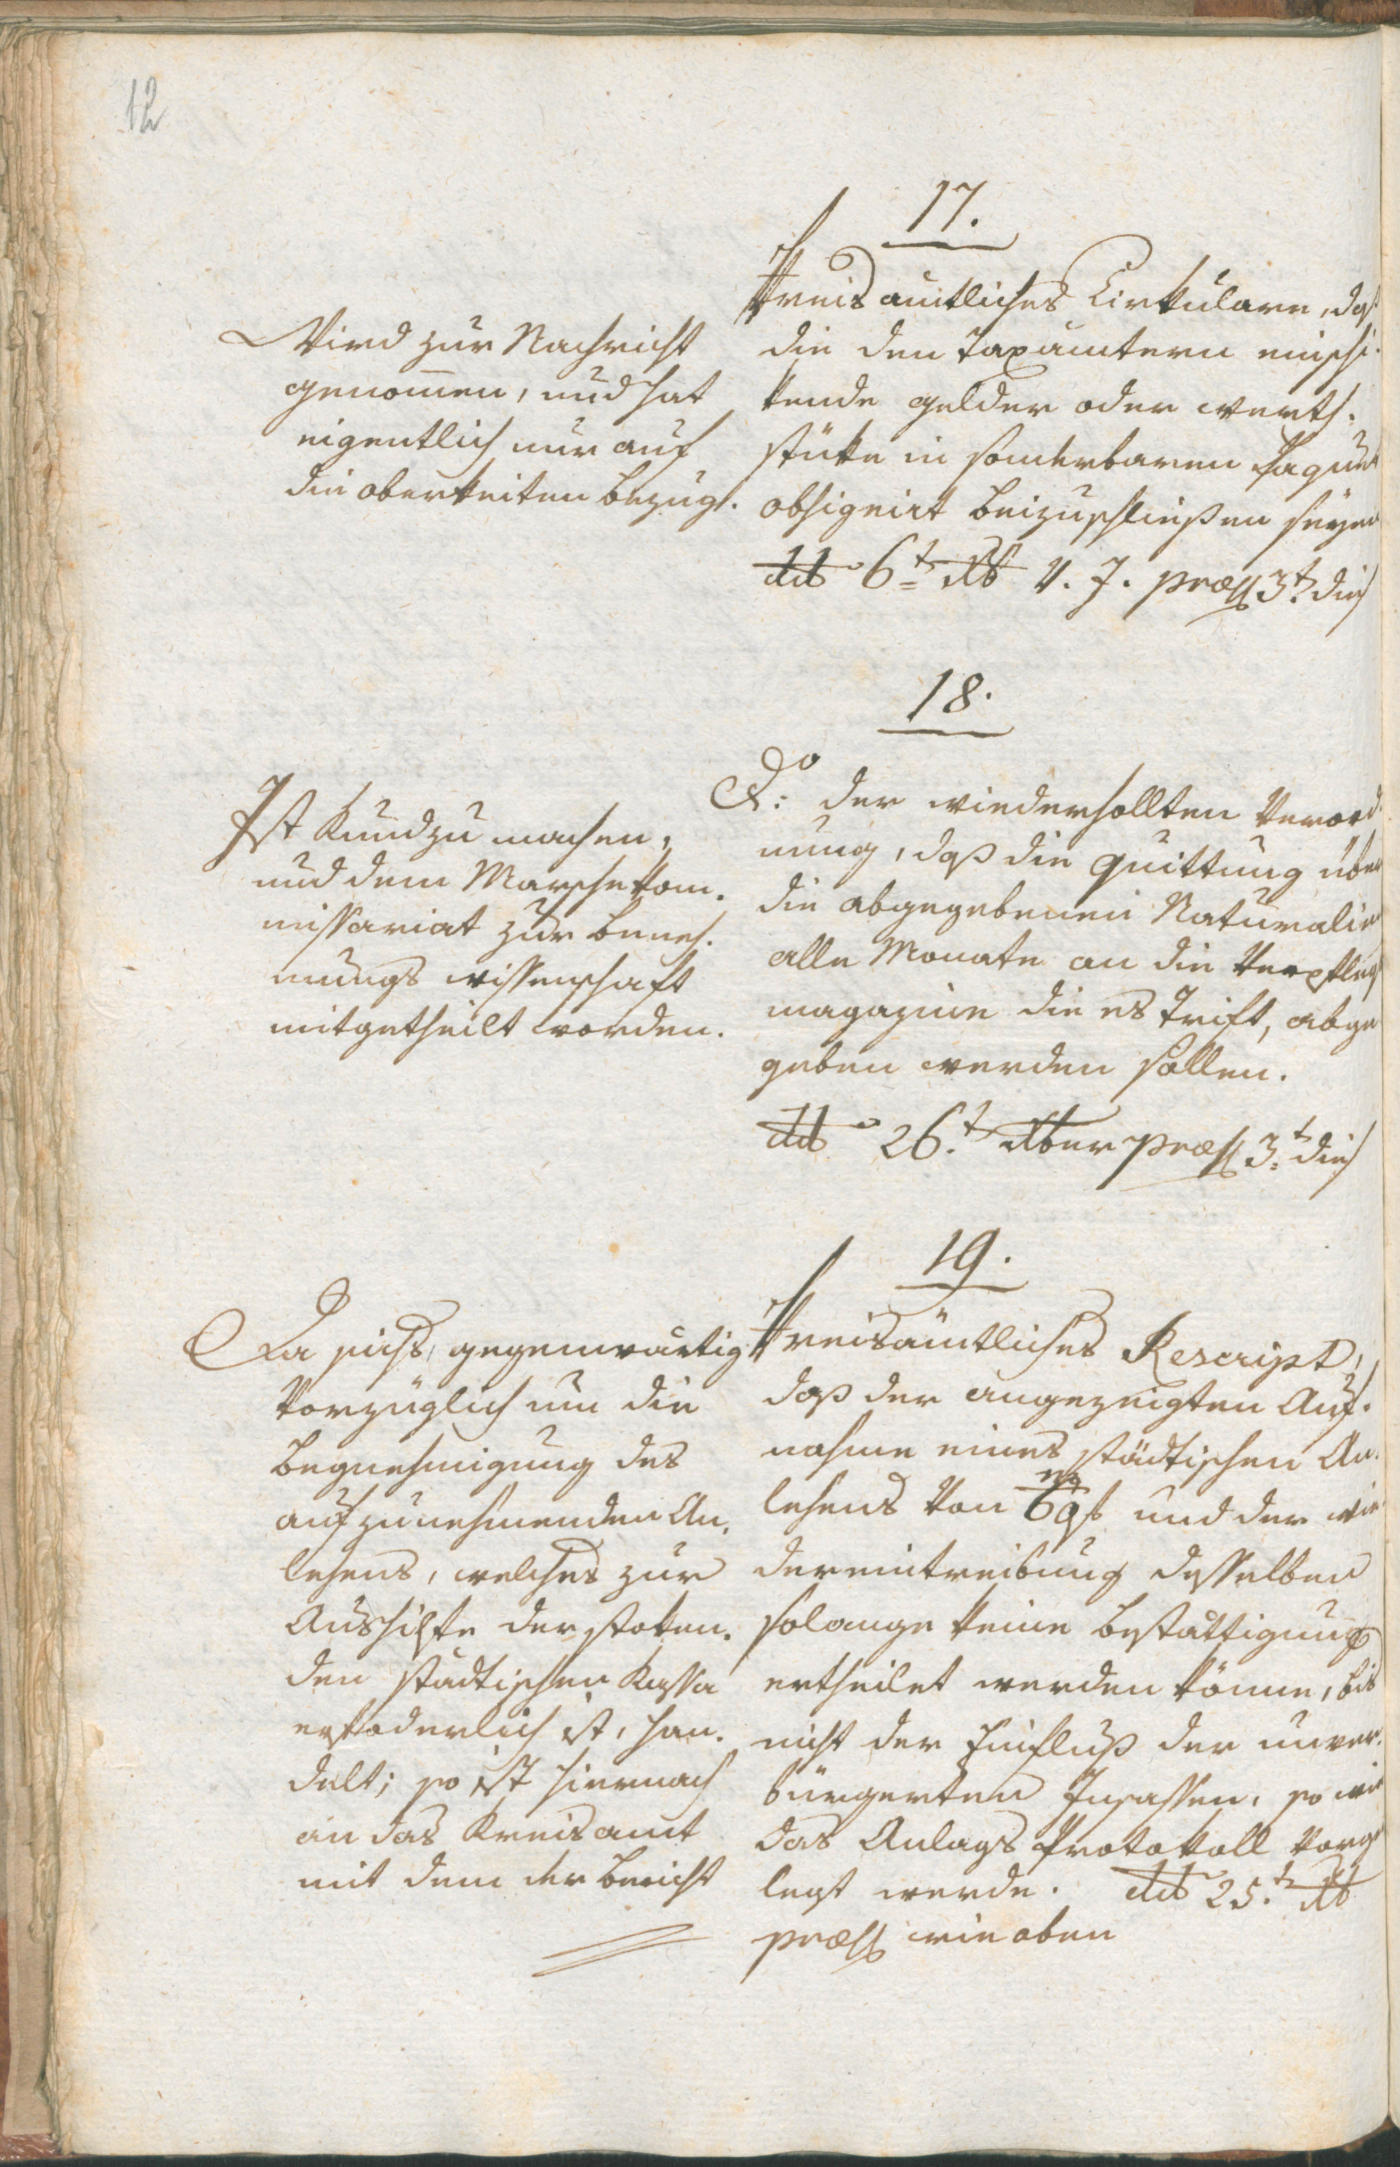 12
17.
Kreisamtliches Cirkulare, daß
die den Taxamtern einschi-
kende gelder oder werth-
stüke in sonderbaren Paquet
obsigniert beizuschließen seyen
ddto 6t xb v. J. præss 3t. dies
Wird zur Nachricht
genommen, und hat
eigentlich nur auf
die oberkeiten bezug.
18.
Do: der wiederhollten Verord-
nung, daß die quittung über
die abgegebenen Naturalien
alle Monate an die Verpflegs
magazine die es Trift, abge
geben werden sollen.
ddto 26.t xber præss 3.t dies
Ist Kundzu machen,
und dem Marschekom-
missariat zur beneh-
mungs wissenschaft
mitgetheilt worden.
19.
Kreisämtliches Rescript,
daß der angezeigten Auf-
nahme eines städtischen An-
lehens von und der wie
dereintreibung desselben
solange keine bestättigung
ertheilet werden könne, bis
nicht der Einfluß der unver-
bürgerten Insassen, so wie
das Anlags Protokoll vorge
legt werde. ddto 25.t xb
præss wie oben
Da sichs gegenwärtig
vorzüglich um die
begnehmigung des
aufzunehmenden An-
lehens, welches zur
Aushilfe der stoken-
den städtischen Kassa
erfoderlich ist, han-
delt; so ist hiernach
an das Kreisamt
mit dem der bericht